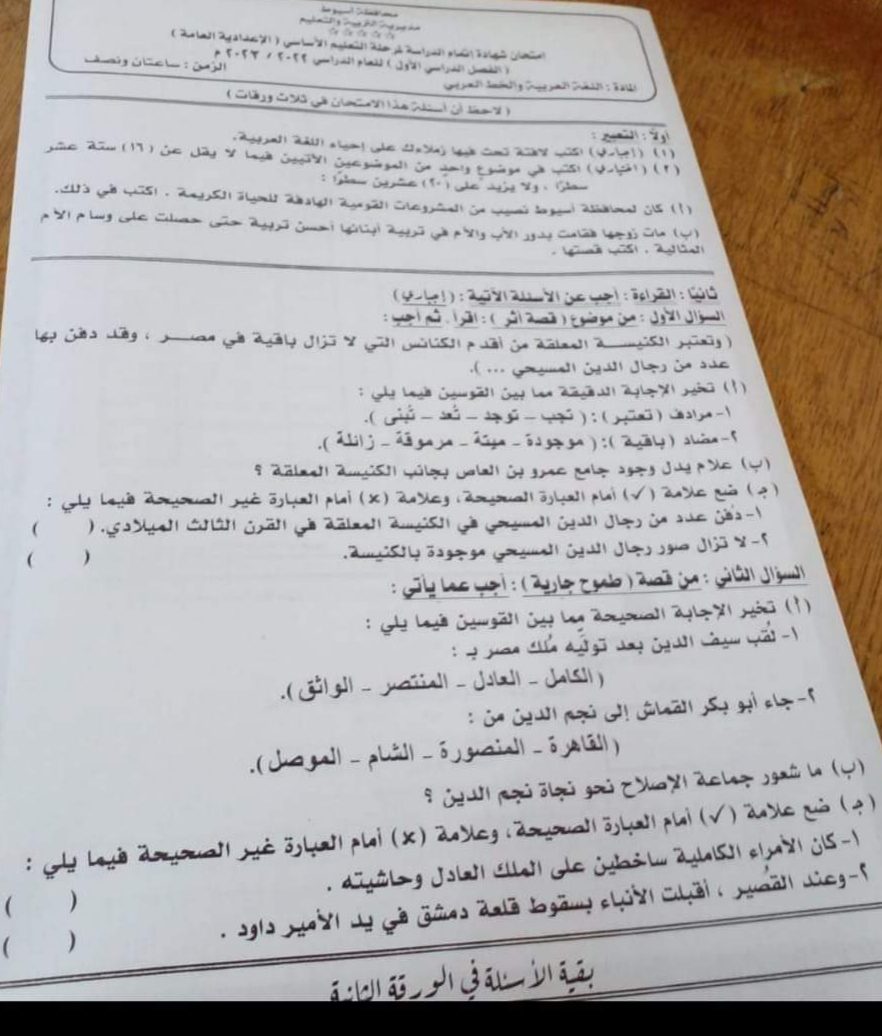 محافظة أسيوط
مديرية التربية والتعليم
☆☆☆☆☆
امتحان شهادة إتمام الدراسة لمرحلة التعليم الأساسي ( الإعدادية العامة )
( الفصل الدراسي الأول ) للعام الدراسي ٢٠٢٢ / ٢٠٢٣ م
المادة : اللغة العربية والخط العربي
الزمن : ساعتان ونصف
( لاحظ أن أسئلة هذا الامتحان في ثلاث ورقات )
أولاً : التعبير :
(١) (إجباري) اكتب لافتة تحث فيها زملاءك على إحياء اللغة العربية.
(٢) (اختياري) اكتب في موضوع واحد من الموضوعين الآتيين فيما لا يقل عن (١٦) ستة عشر
سطرًا ، ولا يزيد على (٢٠) عشرين سطرًا :
(أ) كان لمحافظة أسيوط نصيب من المشروعات القومية الهادفة للحياة الكريمة . اكتب في ذلك.
(ب) مات زوجها فقامت بدور الأب والأم في تربية أبنائها أحسن تربية حتى حصلت على وسام الأم
المثالية . اكتب قصتها .
ثانيًا : القراءة : أجب عن الأسئلة الآتية : (إجباري)
السؤال الأول : من موضوع ( قصة أثر ) : اقرأ. ثم أجب :
( وتعتبر الكنيســة المعلقة من أقدم الكنائس التي لا تزال باقية في مصـر ، وقد دفن بها
عدد من رجال الدين المسيحي ... ).
(أ) تخير الإجابة الدقيقة مما بين القوسين فيما يلي :
١- مرادف (تعتبر) : ( تجب – توجد – تُعد – تُبنى ).
٢- مضاد (باقية) :( موجودة – ميتة – مرموقة – زائلة ).
(ب) علام يدل وجود جامع عمرو بن العاص بجانب الكنيسة المعلقة ؟
(جـ) ضع علامة (✓) أمام العبارة الصحيحة، وعلامة (×) أمام العبارة غير الصحيحة فيما يلي :
١- دُفن عدد من رجال الدين المسيحي في الكنيسة المعلقة في القرن الثالث الميلادي. ( )
٢- لا تزال صور رجال الدين المسيحي موجودة بالكنيسة. ( )
السؤال الثاني : من قصة ( طموح جارية ) : أجب عما يأتي :
(أ) تخير الإجابة الصحيحة مما بين القوسين فيما يلي :
١- لُقب سيف الدين بعد توليه مُلك مصر بـ :
( الكامل – العادل – المنتصر – الواثق ).
٢- جاء أبو بكر القماش إلى نجم الدين من :
( القاهرة – المنصورة – الشام – الموصل ).
(ب) ما شعور جماعة الإصلاح نحو نجاة نجم الدين ؟
(جـ) ضع علامة (✓) أمام العبارة الصحيحة، وعلامة (×) أمام العبارة غير الصحيحة فيما يلي :
١- كان الأمراء الكاملية ساخطين على الملك العادل وحاشيته . ( )
٢- وعند القُصير ، أقبلت الأنباء بسقوط قلعة دمشق في يد الأمير داود . ( )
بقية الأسئلة في الورقة الثانية